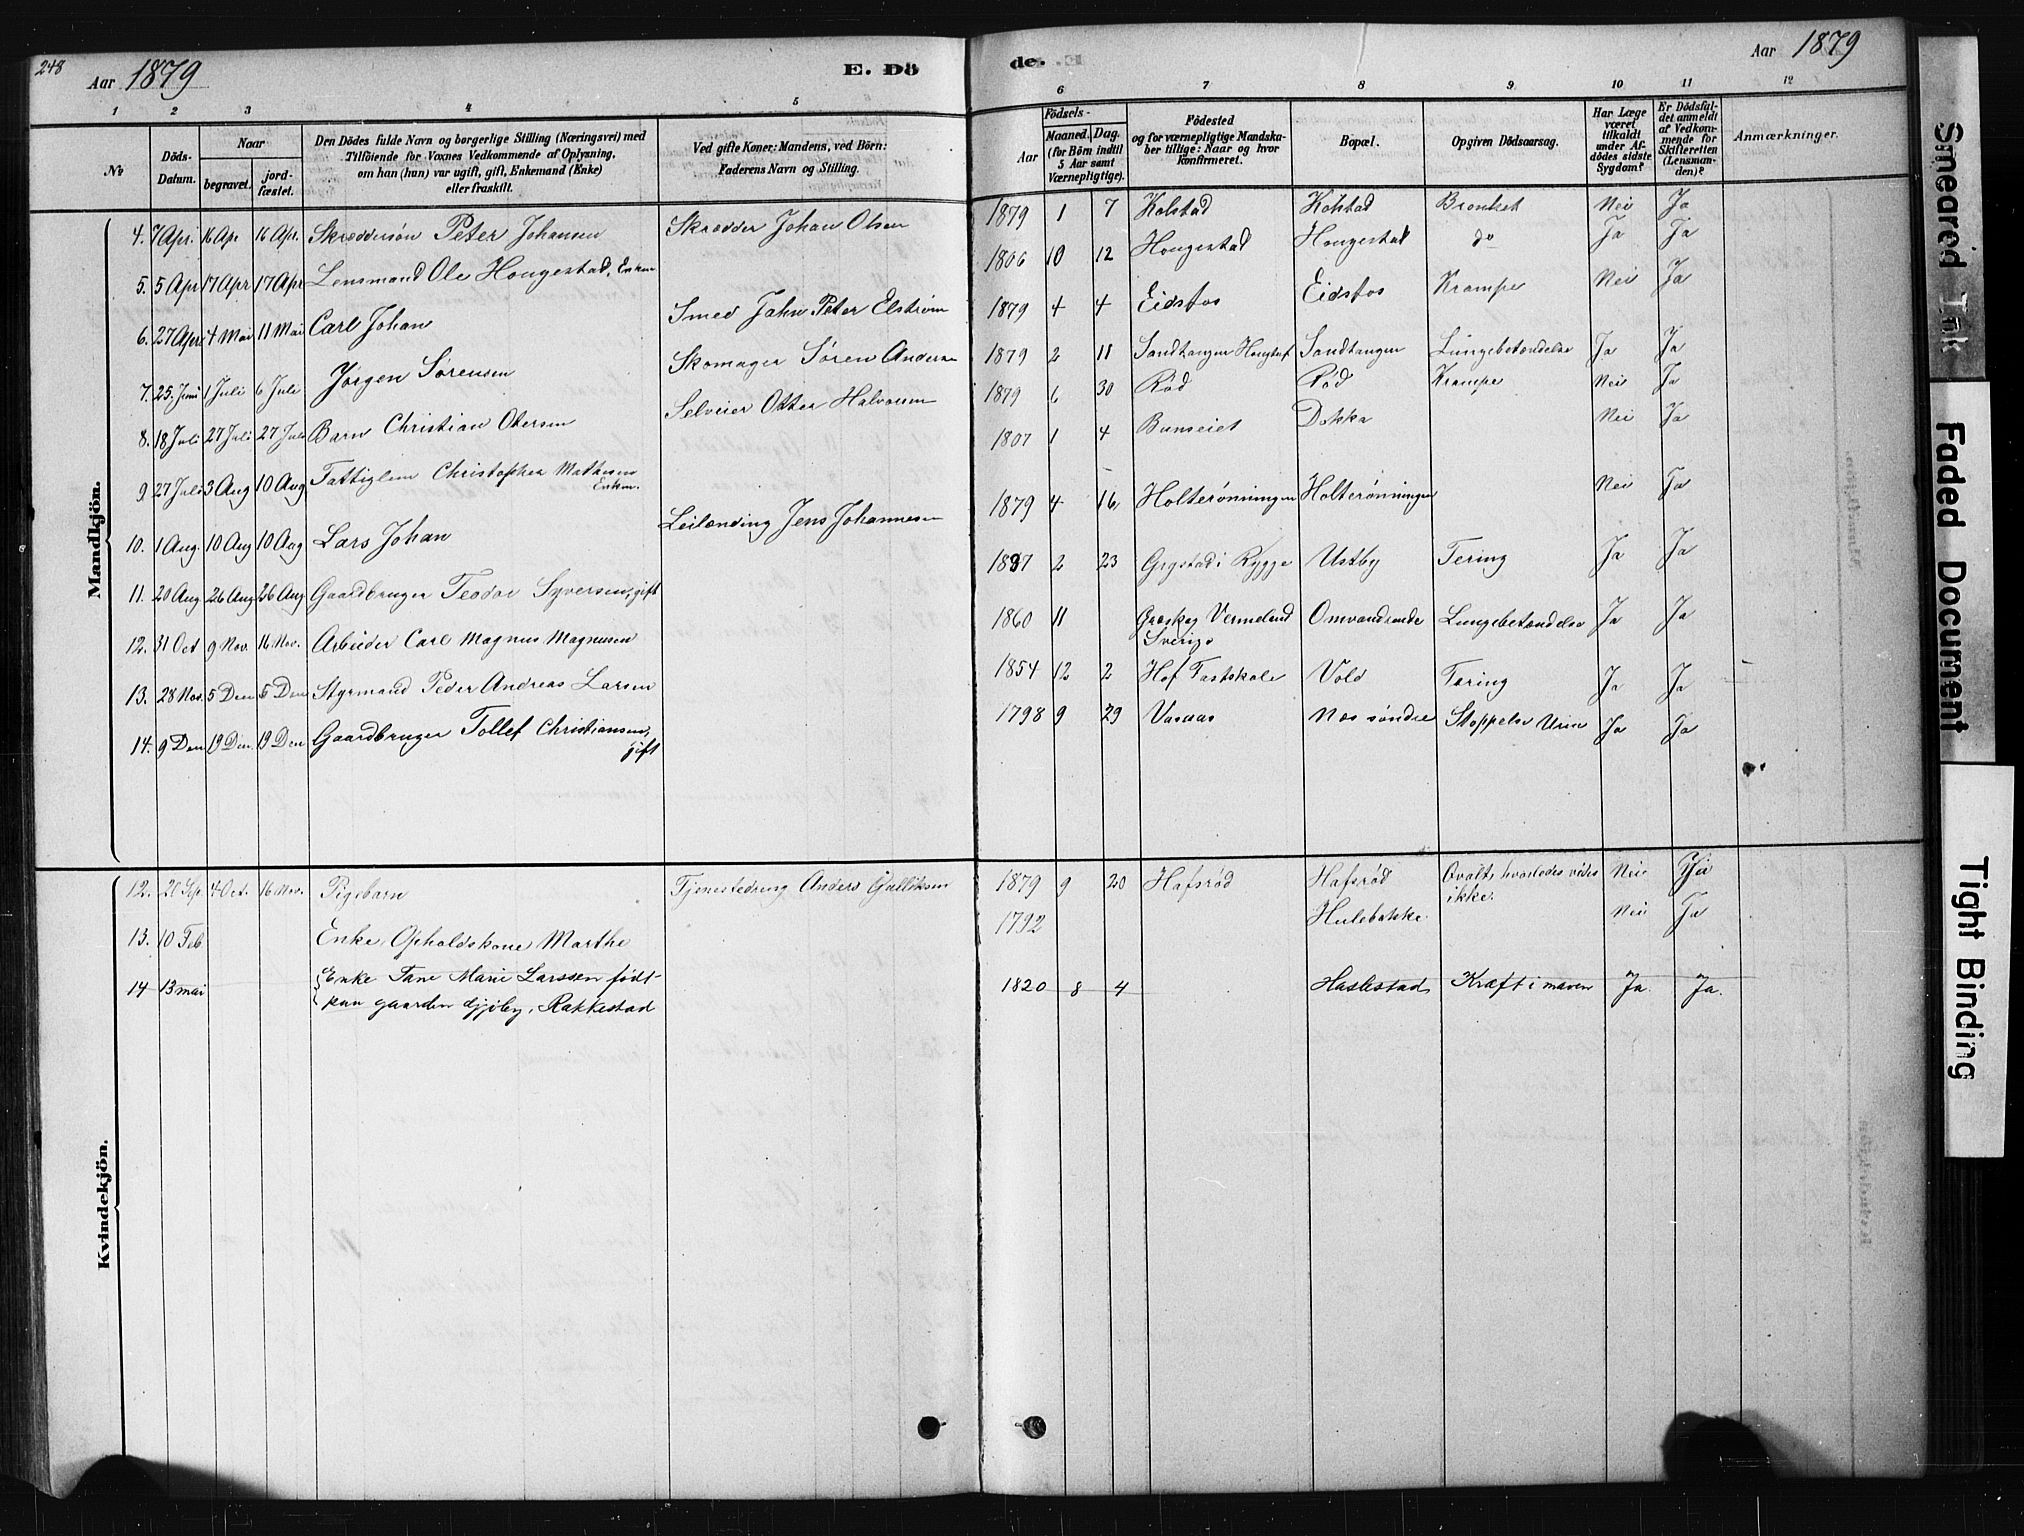 248
Aar 1879
E. Dö
de.
Aar 1879
1 2 3 4 5 6 7 8 9 10 11 12
No
Döds-Datum.
Naar
begravet.
jord-fæstet.
Den Dödes fulde Navn og borgerlige Stilling (Næringsvei) med
Tilföiende for Voxnes Vedkommende af Oplysning,
om han (hun) var ugift, gift, Enkemand (Enke)
eller fraskilt.
Ved gifte Koner: Mandens, ved Börn:
Faderens Navn og Stilling.
Födsels-
Aar
Maaned. Dag.
(for Börn indtil
5 Aar samt
Værnepligtige).
Födested
og for værnepligtige Mandska-
ber tillige: Naar og hvor
konfirmeret.
Bopæl.
Opgiven Dödsaarsag.
Har Læge
været
tilkaldt
under Af-
dödes sidste
Sygdom?
Er Dödsfal-
det anmeldt
af Vedkom-
mende for
Skifteretten
(Lensman-
den)?
Anmærkninger.
Mandkjön.
4. 7 Apr. 16 Apr 16 Apr. Skræddersøn Peter Johansen Skrædder Johan Olsen 1879 1 7 Kolstad Kolstad Bronket Nei Ja
5. 5 Apr 17 Apr 17 Apr Lensmand Ole Hougestad, Enkm 1806 10 12 Hougestad Hougestad do Ja Ja
6. 27 Apr 4 Mai 11 Mai Carl Johan Smed Jahn Peter Elstrøm 1879 4 4 Eidsfos Eidsfos Krampe Nei Ja
7. 25. Juni 1 Juli 6 Juli Jörgen Sørensen Skomager Søren Andersen 1879 2 11 Sandtangen Sandtangen Lungebetændelse Ja Ja
8. 18 Juli 27 Juli 27 Juli Barn Christian Otersen Selveier Otter Halvorsen 1879 6 30 Rød Rød Krampe Nei Ja
9 27 Juli 3 Aug 10 Aug Fattiglem Christopher Mathesen
Enkm. 1807 1 4 Bunseiet Dokka Nei Ja
10. 1 Aug. 10 Aug 10 Aug Lars Johan Leilænding Jens Johannesen 1879 4 16 Holterønningen Holterønningen Nei Ja
11. 20 Aug. 26 Aug 26 Aug Gaardbruger Teodor Syversen, gift 1837 2 23 Grystad i Rygge Ustby Tering Ja Ja
12. 31 Oct 9 Nov. 16 Nov. Arbeider Carl Magnus Magnusen 1860 11 Vermeland
Sverige Omvandrende Lungebetændelse Ja Ja
13. 28 Nov. 5 Den 5 Den Styrmand Peder Andreas Larsen 1854 12 2 Hof Fastskole Vold Tæring Ja Ja
14. 9 Den 19 Den. 19 Den Gaardbruger Tollef Christiansen,
gift 1798 9 29 Vasaas Næs søndre Stoppelse Urin Ja Ja
Kvindekjön.
12. 20 Sep. 4 Oct. 16 Nov. Pigebarn Tjenestedreng Anders Gulliksen 1879 9 20 Hafsrød Hafsrød Qvalt, hvorledes vides
ikke. Nei Ja
13. 10 Feb Enke, Opholdskone Marthe 1792 Hulebakke Nei Ja
14 13 mai Enke Tane Marie Larssen født
paa gaarden Gjöby, Rakkestad 1820 8 4 Haslestad Kræft i maven Ja. Ja.
Smeared Ink
Faded Document
Tight Binding